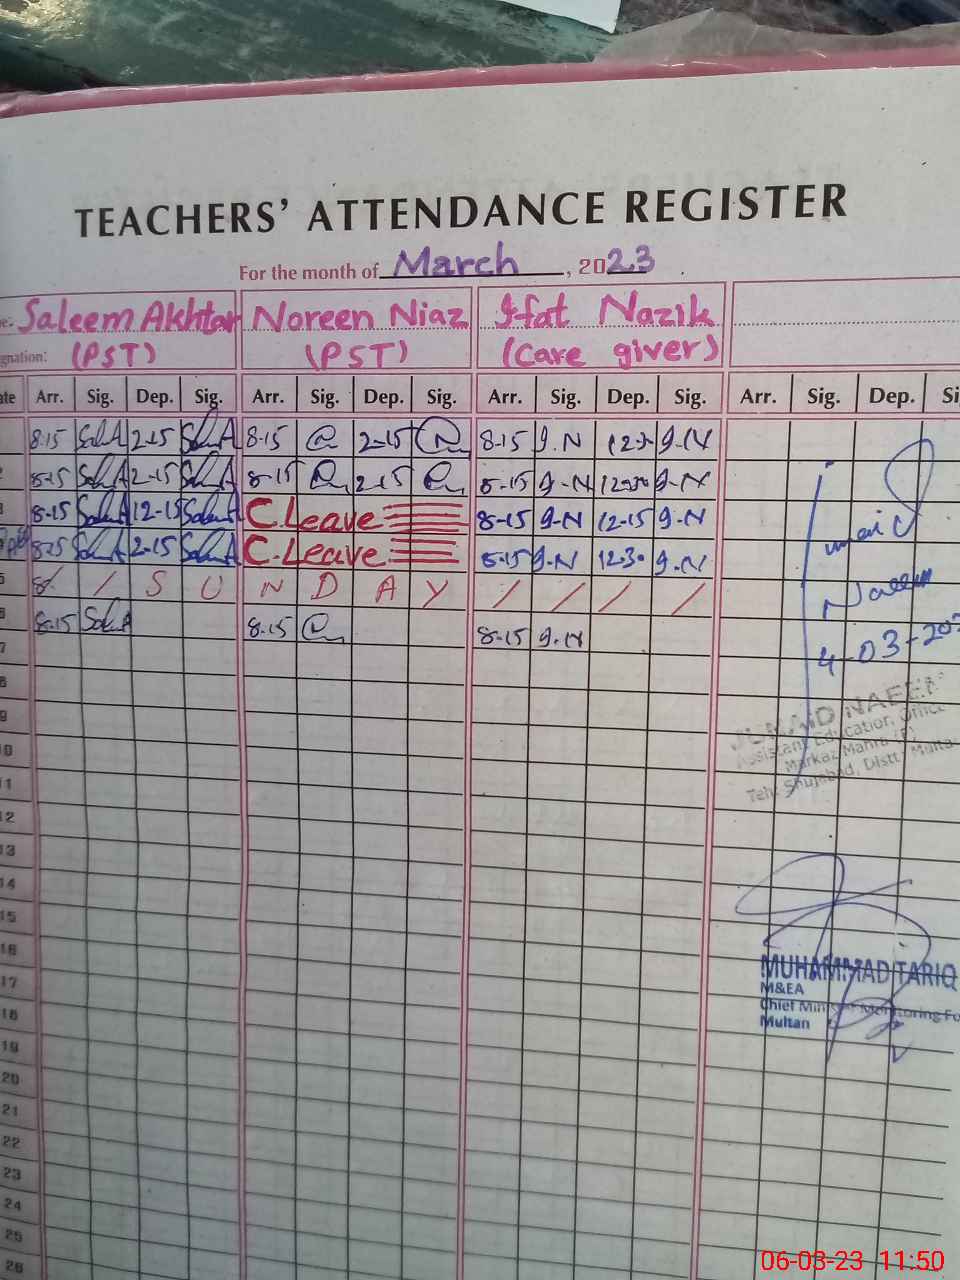 TEACHERS' ATTENDANCE REGISTER
For the month of March, 2023
e: Saleem Akhtar Noreen Niaz Ifat Nazik
gnation: (PST) (PST) (Care giver)
ate Arr. Sig. Dep. Sig. Arr. Sig. Dep. Sig. Arr. Sig. Dep. Sig. Arr. Sig. Dep. Si
8-15 2-15 8-15 2-15 8-15 I.N I.N
8-15 2-15 8-15 2-15 8-15 I-N 12-30 I-N
8-15 12-15 C.Leave 8-15 I-N 12-15 I-N
8-15 2-15 C.Leave 8-15 I-N 12-30 I-N
5 / S U N D A Y / / / /
8-15 8-15 8-15 I-N
7
8
9
10
11
12
13
14
15
16
17
18
19
20
21
22
23
24
25
26
Naeem
4-03-202
NAEEM
Assistant Education Office
Markaz Mahra (P)
Teh. Shujabad, Distt. Multa
MUHAMMAD TARIQ
M&EA
Chief Minister Monitoring Fo
Multan
06-03-23 11:50